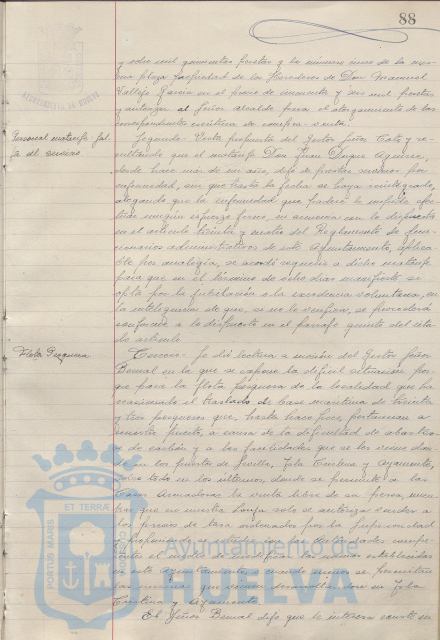 88
y ocho mil quinientas pesetas y la número once de la mis-
ma plaza propiedad de los Herederos de Don Manuel
Vallejo García en el precio de cincuenta y seis mil pesetas
y autorizar al Señor Alcalde para el otorgamiento de las
correspondientes escrituras de compra-venta.
Personal matarife fal-
ta del servicio
Segundo. Vista propuesta del Gestor Señor Coto y re-
sultando que el matarife Don Juan Duque Aguirre,
desde hace más de un año, dejó de prestar servicio por
enfermedad, sin que hasta la fecha se haya reintegrado,
alegando que la enfermedad que padece le impide efec-
tuar ningún esfuerzo físico, en armonía con lo dispuesto
en el artículo treinta y cuatro del Reglamento de fun-
cionarios administrativos de este Ayuntamiento, aplica-
ble por analogía, se acordó requerir a dicho matarife
para que en el término de ocho días manifieste si
opta por la jubilación o la excedencia voluntaria, en
la inteligencia de que, si no lo verifica, se procederá
conforme a lo dispuesto en el párrafo quinto del cita-
do artículo.
Flota Pesquera
Tercero. Se dió lectura a moción del Gestor Señor
Bernal en la que se expone la difícil situación por-
que pasa la flota pesquera de la localidad que ha
ocasionado el traslado de base marítima de treinta
y tres pesqueros que, hasta hace poco, pertenecían a
nuestro puerto, a causa de la dificultad de abastecer-
se de carbón y a las facilidades que se les vienen dan-
do en los puertos de Sevilla, Isla Cristina y Ayamonte,
sobre todo en los últimos, donde se permite a las
Casas Armadoras la venta libre de su pesca, mien-
tras que en nuestra Lonja solo se autoriza vender a
los precios de tasa ordenados por la Superioridad
Isla
Cristina y Ayamonte.
El Señor Bernal dijo que le interesa conste su
PORTUS MARIS ET TERRAE CUSTODIA
Ayuntamiento de
HUELVA